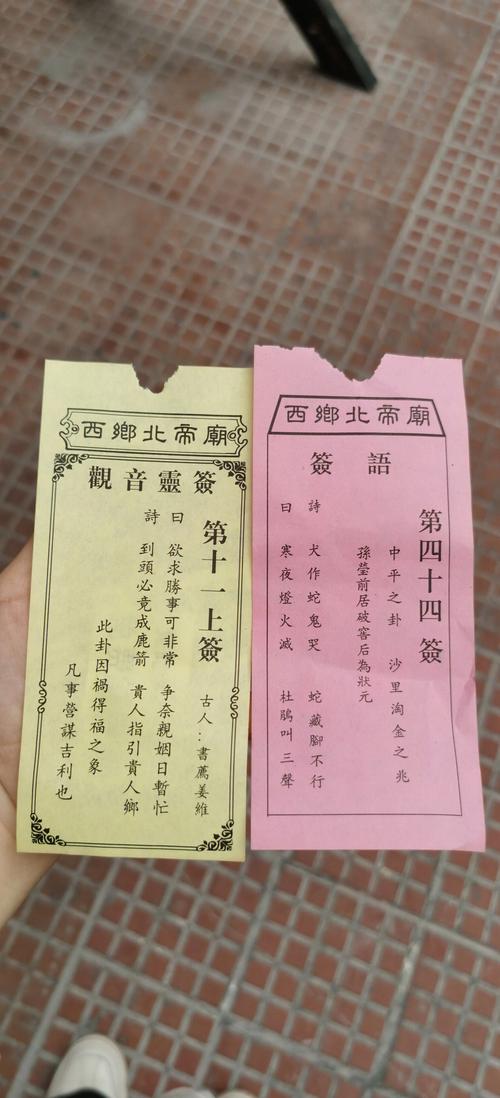 西鄉北帝廟
觀音靈簽
第十一上簽
古人：書薦姜維
詩曰
欲求勝事可非常 爭奈親姻日暫忙
到頭必竟成鹿箭 貴人指引貴人鄉
此卦因禍得福之象
凡事營謀吉利也
西鄉北帝廟
簽語
第四十四簽
中平之卦 沙里淘金之兆
孫瑩前居破窖后為狀元
詩曰
犬作蛇鬼哭 蛇藏腳不行
寒夜燈火滅 杜鵑叫三聲